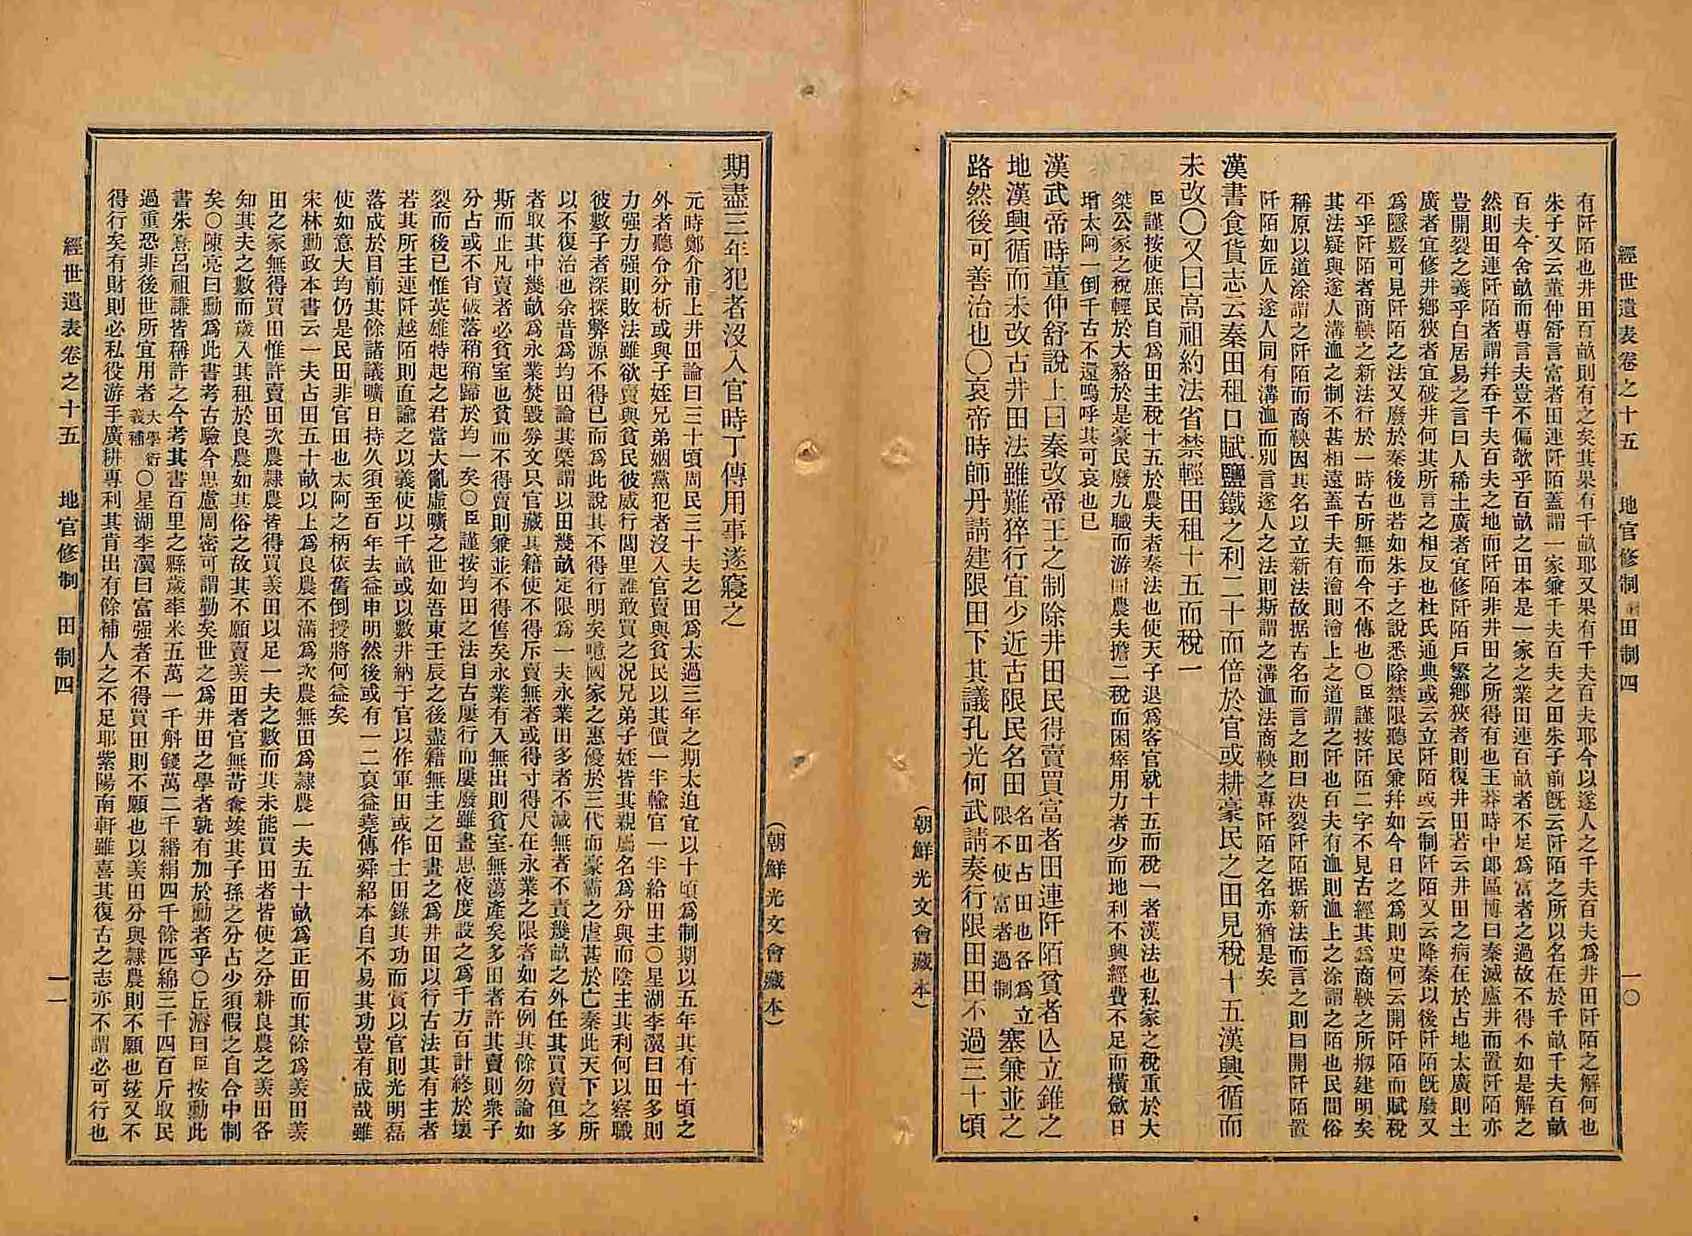 經世遺表卷之十五 地官修制 田制四 一〇
有阡陌也井田百畝則有之矣其果有千畝耶又果有千夫百夫耶今以遂人之千夫百夫爲井田阡陌之解何也
朱子又云董仲舒言富者田連阡陌蓋謂一家兼千夫百夫之田朱子前旣云阡陌之所以名在於千畝千夫百畝
百夫今舍畝而專言夫豈不偏欹乎百畝之田本是一家之業田連百畝者不足爲富者之過故不得不如是解之
然則田連阡陌者謂幷呑千夫百夫之地而阡陌非井田之所得有也王莽時中郎區博曰秦滅廬井而置阡陌亦
豈開裂之義乎白居易之言曰人稀土廣者宜修阡陌戶繁鄉狹者則復井田若云井田之病在於占地太廣則土
廣者宜修井鄉狹者宜破井何其所言之相反也杜氏通典或云立阡陌或云制阡陌又云降秦以後阡陌旣廢又
爲隱覈可見阡陌之法又廢於秦後也若如朱子之說悉除禁限聽民兼幷如今日之爲則史何云開阡陌而賦稅
平乎阡陌者商鞅之新法行於一時古所無而今不傳也〇臣謹按阡陌二字不見古經其爲商鞅之所刱建明矣
其法疑與遂人溝洫之制不甚相遠蓋千夫有澮則澮上之道謂之阡也百夫有洫則洫上之涂謂之陌也民間俗
稱原以道涂謂之阡陌而商鞅因其名以立新法故据古名而言之則曰决裂阡陌据新法而言之則曰開阡陌置
阡陌如匠人遂人同有溝洫而別言遂人之法則斯謂之溝洫法商鞅之專阡陌之名亦猶是矣
漢書食貨志云秦田租口賦鹽鐵之利二十而倍於官或耕豪民之田見稅十五漢興循而
未改〇又曰高祖約法省禁輕田租十五而稅一
臣謹按使庶民自爲田主稅十五於農夫者秦法也使天子退爲客官就十五而稅一者漢法也私家之稅重於大
桀公家之稅輕於大貉於是豪民廢九職而游田農夫擔二稅而困瘁用力者少而地利不興經費不足而橫斂日
增太阿一倒千古不還嗚呼其可哀也已
漢武帝時董仲舒說上曰秦改帝王之制除井田民得賣買富者田連阡陌貧者亾立錐之
地漢興循而未改古井田法雖難猝行宜少近古限民名田名田占田也各爲立限不使富者過制塞兼並之
路然後可善治也〇哀帝時師丹請建限田下其議孔光何武請奏行限田田不過三十頃
(朝鮮光文會藏本)
期盡三年犯者沒入官時丁傳用事遂寢之
元時鄭介甫上井田論曰三十頃周民三十夫之田爲太過三年之期太迫宜以十頃爲制期以五年其有十頃之
外者聽分分析或與子姪兄弟姻黨犯者沒入官賣與貧民以其價一半輸官一半給田主〇星湖李瀷曰田多則
力强力强則敗法雖欲賣與貧民彼威行閭里誰敢買之况兄弟子姪皆其親屬名爲分與而陰主其利何以察職
彼數子者深探弊源不得已而爲此說其不得行明矣噫國家之惠優於三代而豪霸之虐甚於亡秦此天下之所
以不復治也余昔爲均田論其槩謂以田幾畝定限爲一夫永業田多者不減無者不責幾畝之外任其買賣但多
者取其中幾畝爲永業焚毀券文只官藏其籍使不得斥賣無者或得寸得尺在永業之限者如右例其餘勿論如
斯而止凡賣者必貧室也貧而不得賣則兼並不得售矣永業有入無出則貧室無蕩產矣多田者許其賣則衆子
分占或不肖破落稍稍歸於均一矣〇臣謹按均田之法自古屢行而屢廢雖晝思夜度設之爲千方百計終於壞
裂而後已惟英雄特起之君當大亂虛曠之世如吾東壬辰之後盡籍無主之田畫之爲井田以行古法其有主者
若其所主連阡越陌則直諭之以義使以千畝或以數井納于官以作軍田或作士田錄其功而實以官則光明磊
落成於目前其餘諸議曠日持久須至百年去益申明然後或有一二裒益堯傳舜紹本自不易其功豈有成哉雖
使如意大均仍是民田非官田也太阿之柄依舊倒授將何益矣
宋林勳政本書云一夫占田五十畝以上爲良農不滿爲次農無田爲隷農一夫五十畝爲正田而其餘爲羨田羨
田之家無得買田惟許賣田次農隷農皆得買羨田以足一夫之數而其未能買田者皆使之分耕良農之羨田各
知其夫之數而歲入其租於良農如其俗之故其不願賣羨田者官無苛奪竢其子孫之分占少須假之自合中制
矣〇陳亮曰勳爲此書考古驗今思慮周密可謂勤矣世之爲井田之學者孰有加於勳者乎〇丘濬曰臣按勳此
書朱熹呂祖謙皆稱許之今考其書百里之縣歲率米五萬一千斛錢萬二千緡絹四千餘匹綿三千四百斤取民
過重恐非後世所宜用者大學衍義補〇星湖李瀷曰富强者不得買田則不願也以羨田分與隷農則不願也玆又不
得行矣有財則必私役游手廣耕專利其肯出有餘補人之不足耶紫陽南軒雖喜其復古之志亦不謂必可行也
經世遺表卷之十五 地官修制 田制四 一一
(朝鮮光文會藏本)